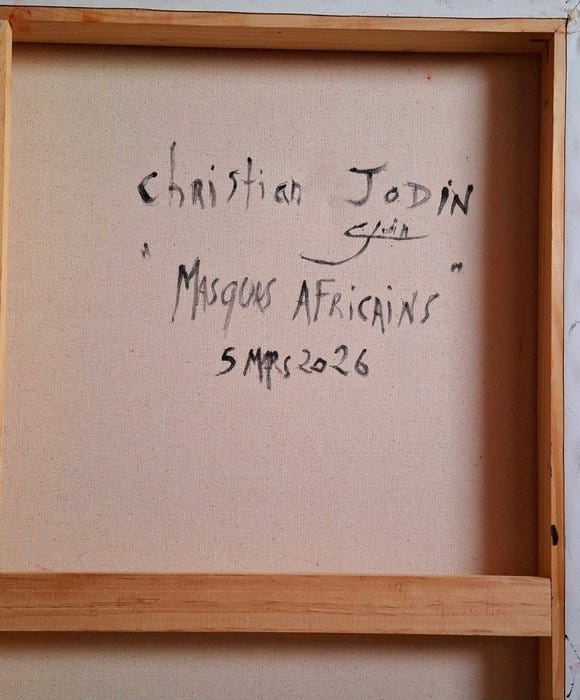 Christian JODIN
CJodin
" MASQUES AFRICAINS "
5 MARS 2026